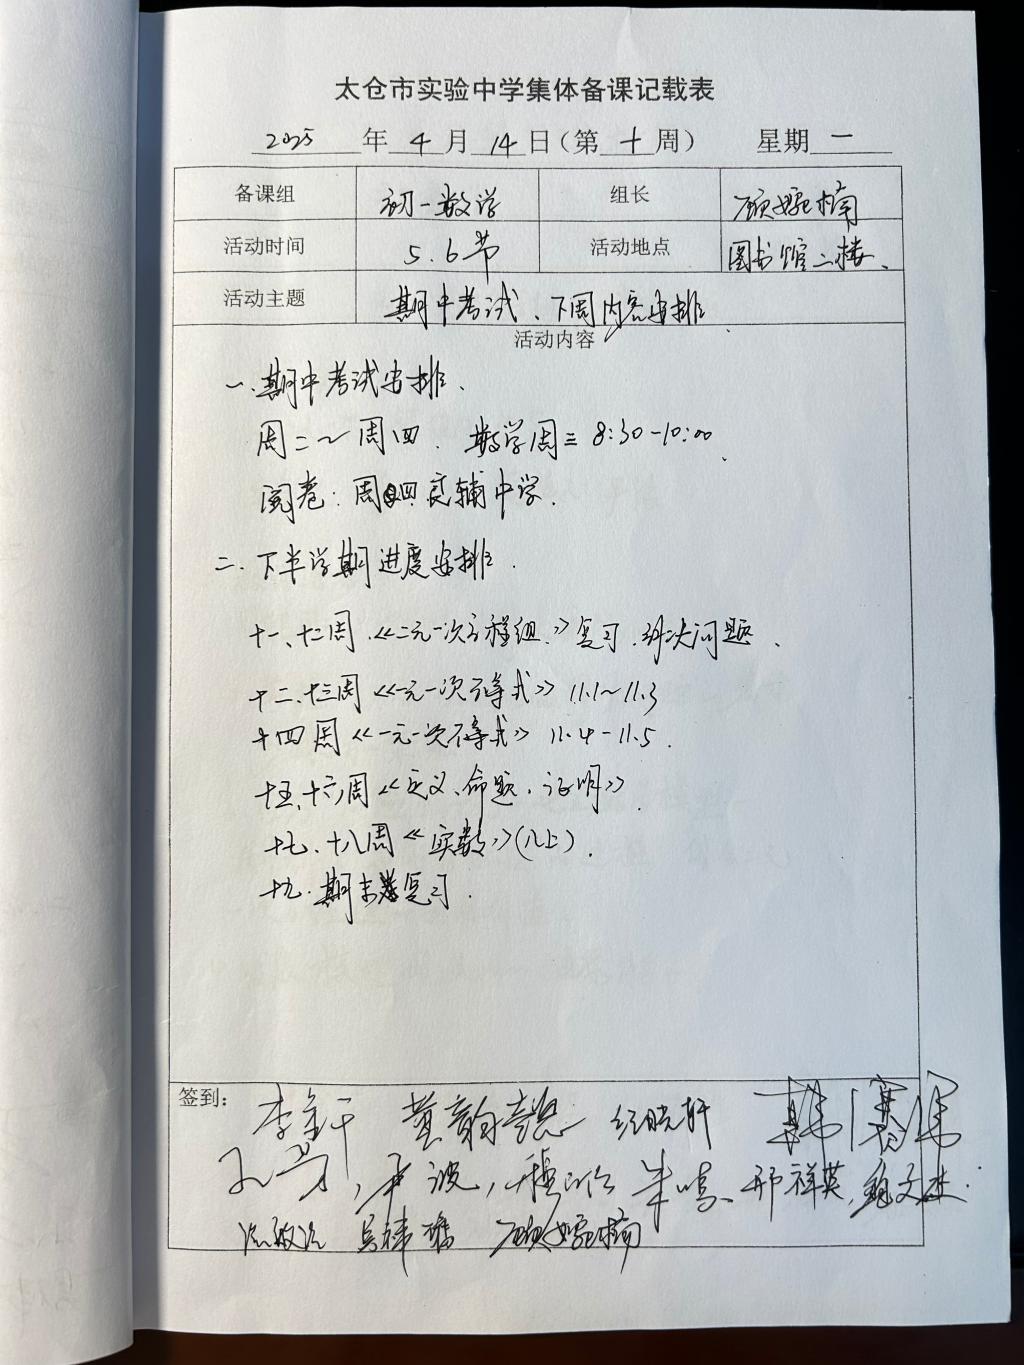 太仓市实验中学集体备课记载表
2025 年 4 月 14 日（第 十 周） 星期 一
备课组 初一数学 组长 顾嫄楠
活动时间 5.6节 活动地点 图书馆二楼、
活动主题 期中考试、下周内容安排
活动内容
一、期中考试安排、
周二～周四. 数学周三 8:30-10:00、
阅卷：周四 良辅中学.
二、下半学期进度安排.
十一、十二周《二元一次方程组》复习.解决问题、
十二、十三周《一元一次不等式》11.1～11.3
十四周《一元一次不等式》11.4-11.5.
十五、十六周《定义、命题、证明》
十七、十八周《实数》(八上).
十九.期末复习.
签到：
尹波, 朱 邢祥英,
顾嫄楠